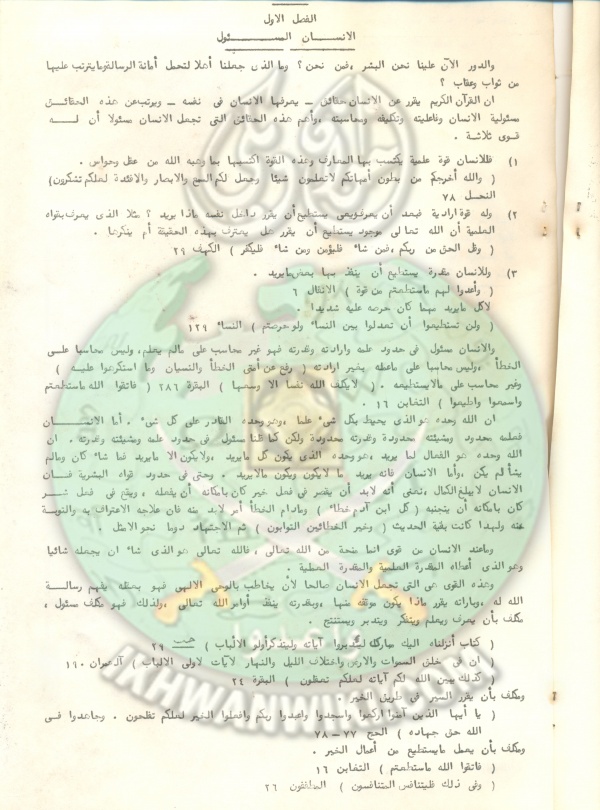 الفصل الاول
الانسان المسئول
والدور الآن علينا نحن البشر ، فمن نحن ؟ وما الذى جعلنا أهلا لتحمل أمانة الرسالة وما يترتب عليها
من ثواب وعقاب ؟
ان القرآن الكريم يقرر عن الانسان حقائق ــ يعرفها الانسان فى نفسه ــ ويرتب عن هذه الحقائق
مسئولية الانسان وفاعليته وتكليفه ومحاسبته ، وأهم هذه الحقائق التى تجعل الانسان مسئولا أن لـــه
قوى ثلاثة .
١) فللانسان قوة علمية يكتسب بها المعارف وهذه القوة اكتسبها بما وهبه الله من عقل وحواس .
( والله أخرجكم من بطون أمهاتكم لاتعلمون شيئا وجعل لكم السمع والابصار والافئدة لعلكم تشكرون)
النحل ٧٨
٢) وله قوة ارادية فبعد أن يعرف ويعى يستطيع أن يقرر داخل نفسه ماذا يريد ؟ مثلا الذى يعرف بقواه
العلمية أن الله تعالى موجود يستطيع أن يقرر هل يعترف بهذه الحقيقة أم ينكرها .
( وقل الحق من ربكم ، فمن شاء فليؤمن ومن شاء فليكفر ) الكهف ٢٩
٣) وللانسان مقدرة يستطيع أن ينفذ بها بعض مايريد .
( وأعدوا لهم مااستطعتم من قوة ) الانفال ٦
لاكل مايريد مهما كان حرصه عليه شديدا .
( ولن تستطيعوا أن تعدلوا بين النساء ولو حرصتم ) النساء ١٢٩
والانسان مسئول فى حدود علمه وارادته وقدرته فهو غير محاسب على مالم يعلم ، وليس محاسبا علـى
الخطأ ، وليس محاسبا على مافعله بغير ارادته ( رفع عن أمتى الخطأ والنسيان وما استكرهوا عليه )
وغير محاسب على مالايستطيعه . ( لايكلف الله نفسا الا وسعها ) البقرة ٢٨٦ ( فاتقوا الله مااستطعتم
واسمعوا واطيعوا ) التغابن ١٦ .
ان الله وحده هو الذى يحيط بكل شىء علما ، وهو وحده القادر على كل شىء . أما الانســـان
فعلمه محدود ومشيئته محدودة وقدرته محدودة ولكن كما قلنا مسئول فى حدود علمه ومشيئته وقدرته . ان
الله وحده هو الفعال لما يريد ، هو وحده الذى يكون كل مايريد ، ولايكون الا مايريد فما شاء كان ومالم
يشأ لم يكن ، وأما الانسان فانه يريد ما لايكون ويكون مالايريد . وحتى فى حدود قواه البشرية فــان
الانسان لايبلغ الكمال ، بمعنى أنه لابد أن يقصر فى فعل خير كان بامكانه أن يفعله ، ويقع فى فعل شــر
كان بامكانه أن يتجنبه ( كل ابن آدم خطاء ) ومادام الخطأ أمر لابد منه فان علاجه الاعتراف به والتوبة
عنه ولهذا كانت بقية الحديث ( وخير الخطائين التوابون ) ثم الاجتهاد دوما نحو الامثل .
وماعند الانسان من قوى انما منحة من الله تعالى ، فالله تعالى هو الذى شاء ان يجعله شائيا
وهو الذى أعطاه المقدرة العلمية والمقدرة العملية .
وهذه القوى هى التى تجعل الانسان صالحا لأن يخاطب بالوحى الالهى فهو بعقله يفهم رسـالـة
الله له ، وبارادته يقرر ماذا يكون موقفه منها ، وبقدرته ينفذ أوامر الله تعالى ، ولذلك فهو مكلف مسئول ،
مكلف بأن يعرف ويعلم ويتفكر ويتدبر ويستنتج .
( كتاب أنزلناه اليك مبارك ليتدبروا آياته وليتذكر أولو الالباب ) ٢٩
( ان فى خلق السموات والارض واختلاف الليل والنهار لآيات لاولى الالباب ) آل عمران ١٩٠
( كذلك يبين الله لكم آياته لعلكم تعقلون ) البقرة ٢٤
ومكلف بأن يقرر السير فى طريق الخير .
( يا أيها الذين آمنوا اركعوا واسجدوا واعبدوا ربكم وافعلوا الخير لعلكم تفلحون . وجاهدوا فــى
الله حق جهاده ) الحج ٧٧ ــ ٧٨
ومكلف بأن يعمل مايستطيع من أعمال الخير .
( فاتقوا الله مااستطعتم ) التغابن ١٦
( وفى ذلك فليتنافس المتنافسون ) المطففون ٢٦
IKHWANWIKI.COM